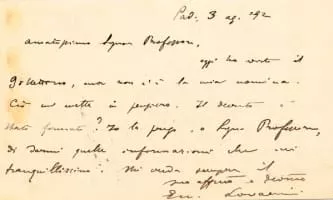 Pad. 3 ag. '92
amatissimo Signor Professore,
oggi ho avuto il
ma non c'è la mia nomina.
Ciò mi mette in pensiero. Il decreto è
stato firmato? Io la prego, o Signor Professore,
di darmi quelle informazioni che mi
tranquillizzino. Mi creda sempre il
suo affmo e devmo
Em. Lovarini